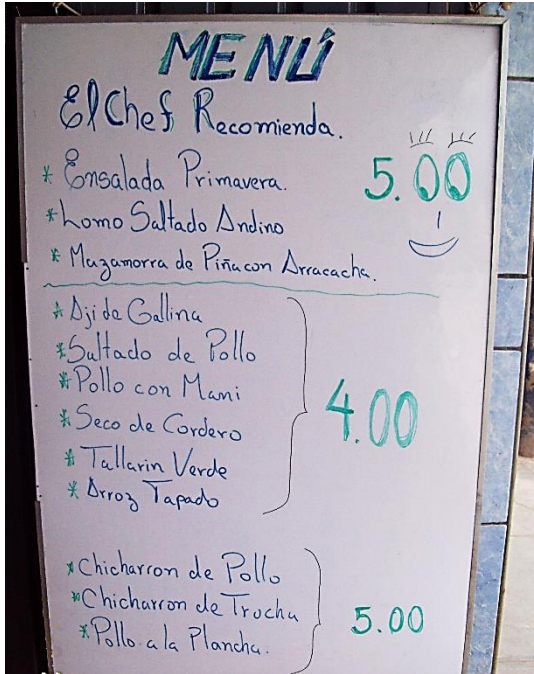 MENÚ
El Chef Recomienda.
* Ensalada Primavera. 5.00
* Lomo Saltado Andino
* Mazamorra de Piña con Arracacha.
* Aji de Gallina
* Saltado de Pollo
* Pollo con Mani
* Seco de Cordero
4.00
* Tallarin Verde
* Arroz Tapado
* Chicharron de Pollo
* Chicharron de Trucha
* Pollo a la Plancha.
5.00